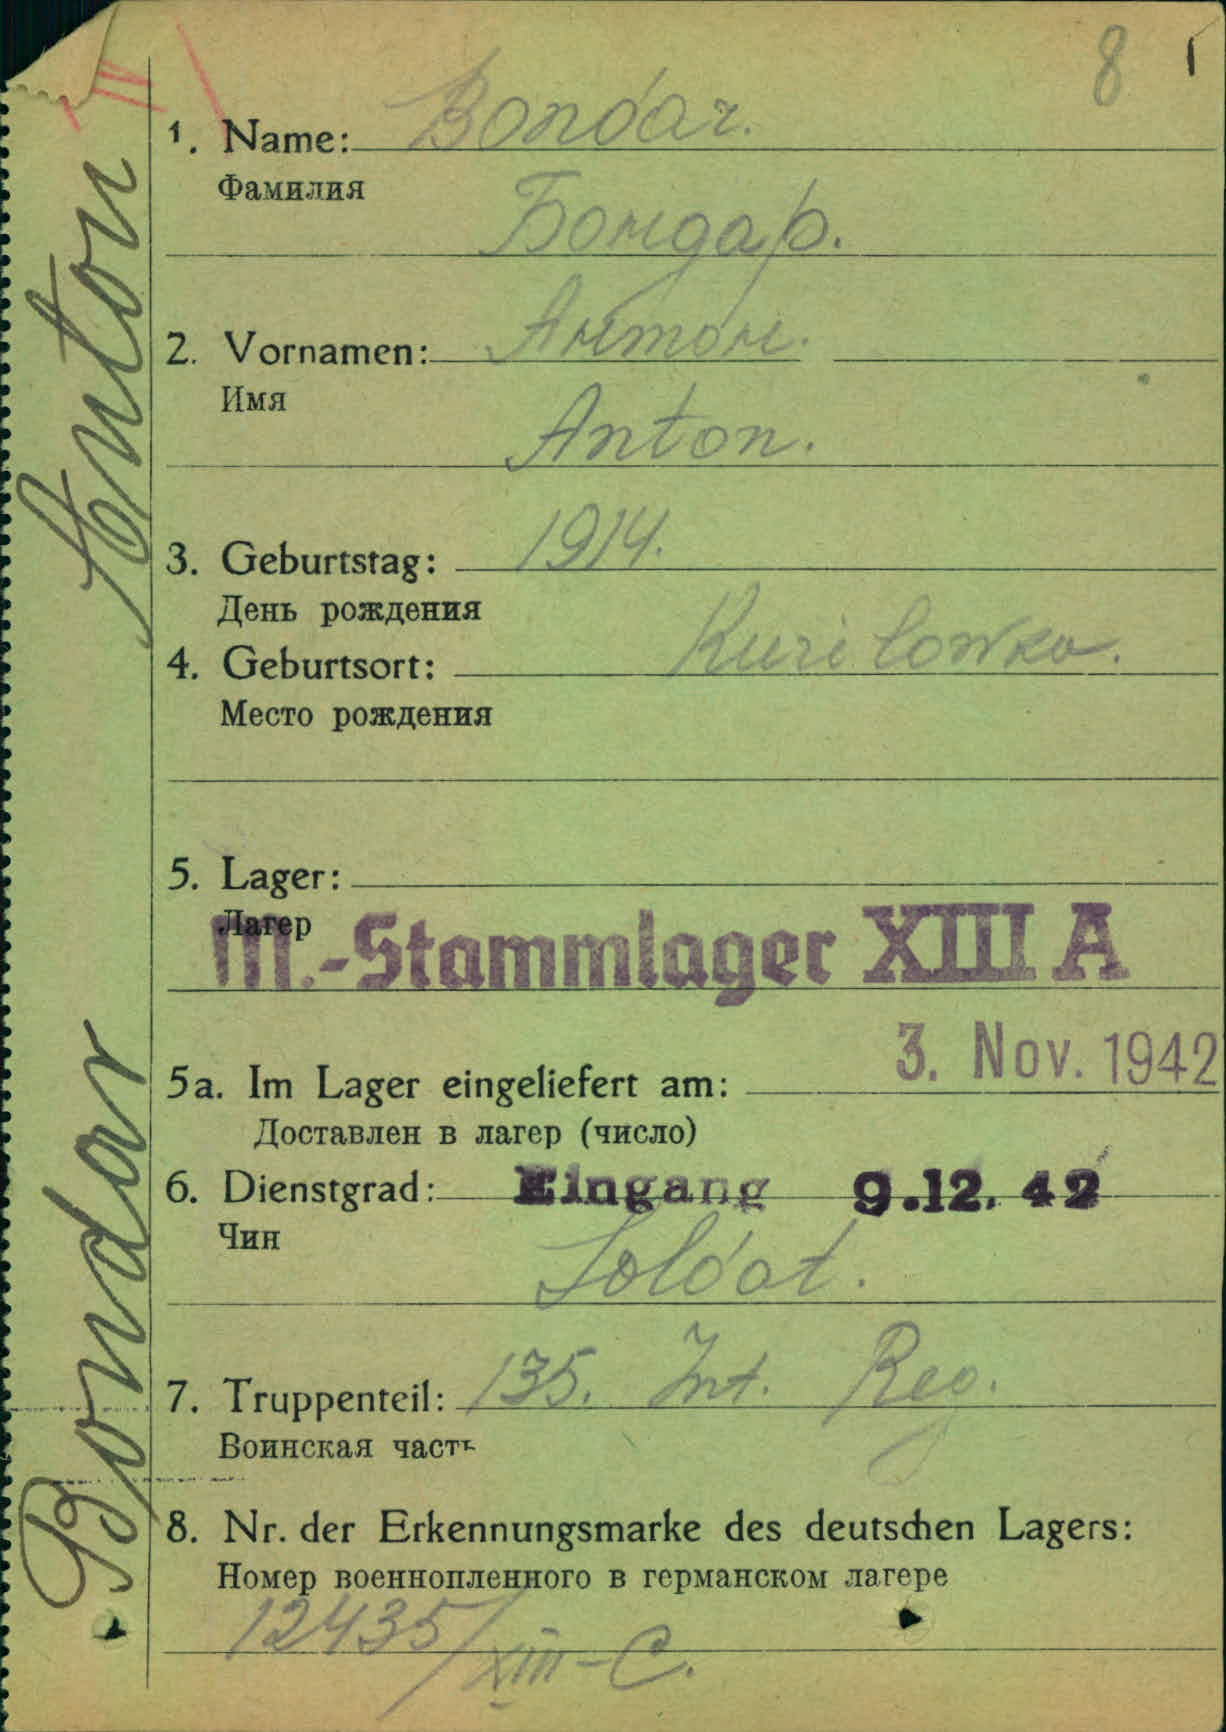 IV
8
1. Name: Bondar.
Фамилия
Бондар.
2. Vornamen: Антон.
Имя
Anton.
3. Geburtstag: 1914.
День рождения
4. Geburtsort: Kurilowka.
Место рождения
5. Lager:
Лагер
M.-Stammlager XIII A
3. Nov. 1942
5a. Im Lager eingeliefert am:
Доставлен в лагер (число)
6. Dienstgrad: Eingang 9.12.42
Чин
Soldat.
7. Truppenteil: 135. Inf. Reg.
Воинская часть
8. Nr. der Erkennungsmarke des deutschen Lagers:
Номер военнопленного в германском лагере
12435/XIII-C.
Bondar Anton